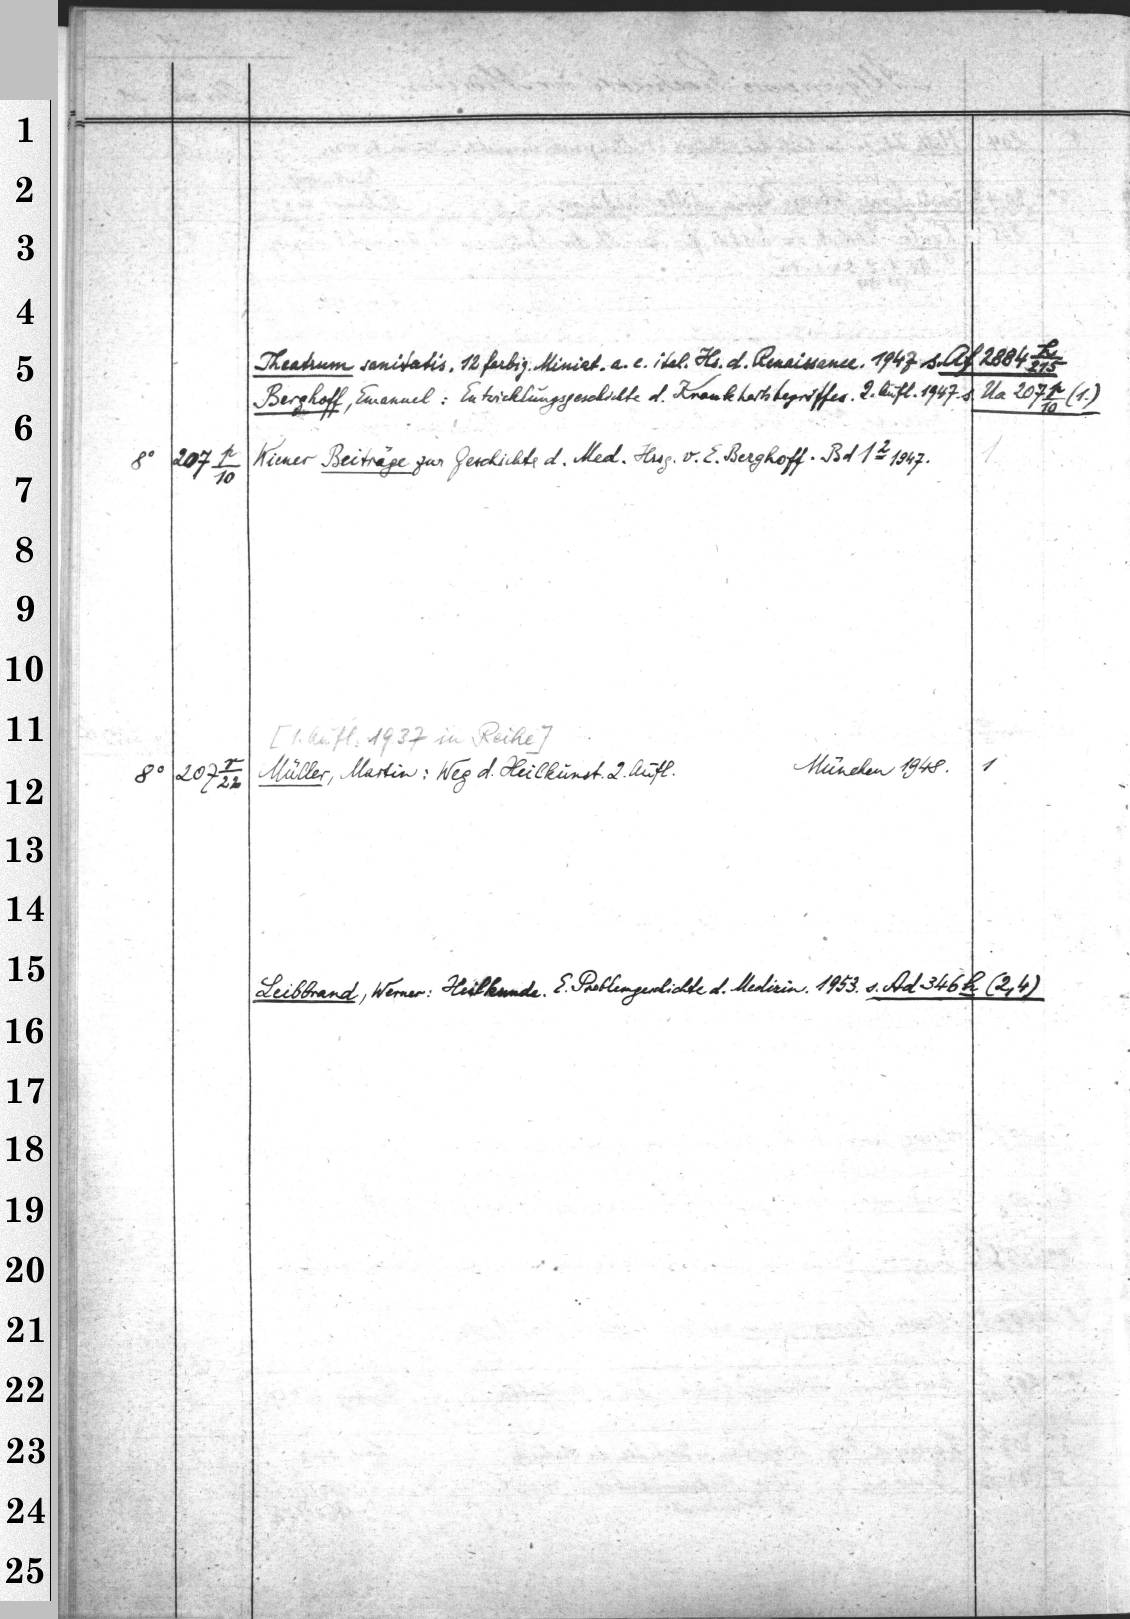 1
2
3
4
5
Theatrum sanitatis. 12 farbig. Miniat. a. e. ital. Hs. d. Renaissance. 1947 s. Af 2884 h/215
Berghoff, Emanuel: Entwicklungsgeschichte d. Krankheitsbegriffes. 2. Aufl. 1947. s. Ua 207 p/10 (1.)
6
8° 207 p/10 Wiener Beiträge zur Geschichte d. Med. Hrsg. v. E. Berghoff. Bd 1² 1947. 1
7
8
9
10
11
[1. Aufl. 1937 in Reihe]
8° 207 r/22 Müller, Martin: Weg d. Heilkunst. 2. Aufl. München 1948. 1
12
13
14
15
Leibbrand, Werner: Heilkunde. E. Problemgeschichte d. Medizin. 1953. s. Ad 346 h (2,4)
16
17
18
19
20
21
22
23
24
25